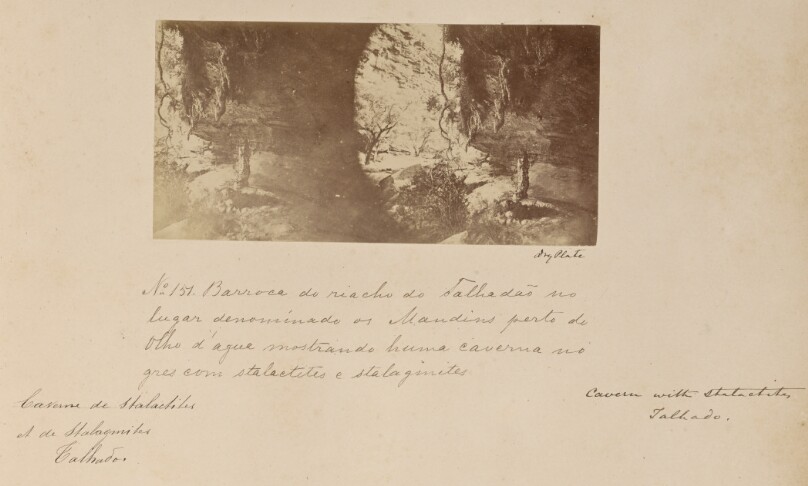 Dry Plate
No 151. Barroca do riacho do Talhadão no
lugar denominado os Mandins perto do
Olho d'ague mostrando huma caverna no
gres com stalactetes e stalagmites
Caverne de Stalactites
et de Stalagmites
Talhado.
Cavern with Stalactites
Talhado.